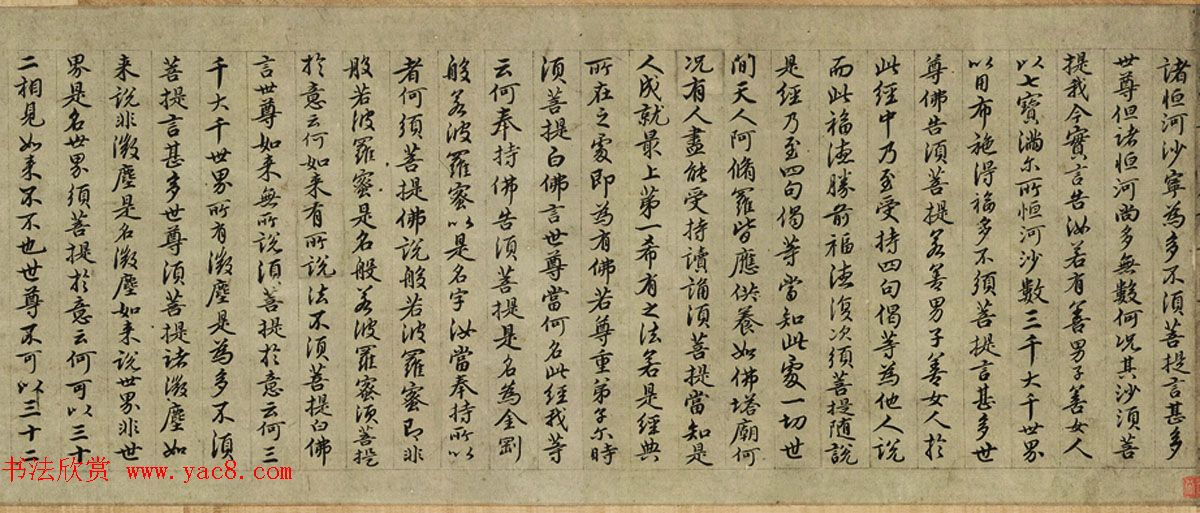 諸恒河沙寧為多不須菩提言甚多
世尊但諸恒河尚多無數何况其沙須菩
提我今實言告汝若有善男子善女人
以七寶滿尒所恒河沙數三千大千世界
以用布施得福多不須菩提言甚多世
尊佛告須菩提若善男子善女人於
此經中乃至受持四句偈等為他人說
而此福德勝前福德復次須菩提随說
是經乃至四句偈等當知此處一切世
間天人阿脩羅皆應供養如佛塔廟何
况有人盡能受持讀誦須菩提當知是
人成就最上第一希有之法若是經典
所在之處即為有佛若尊重弟子尒時
須菩提白佛言世尊當何名此經我等
云何奉持佛告須菩提是名為金剛
般若波羅蜜以是名字汝當奉持所以
者何須菩提佛說般若波羅蜜即非
般若波羅蜜是名般若波羅蜜須菩提
於意云何如来有所說法不須菩提白佛
言世尊如来無所說須菩提於意云何三
千大千世界所有微塵是為多不須
菩提言甚多世尊須菩提諸微塵如
来說非微塵是名微塵如来說世界非世
界是名世界須菩提於意云何可以三十
二相見如来不不也世尊不可以三十二
书法欣赏 www.yac8.com